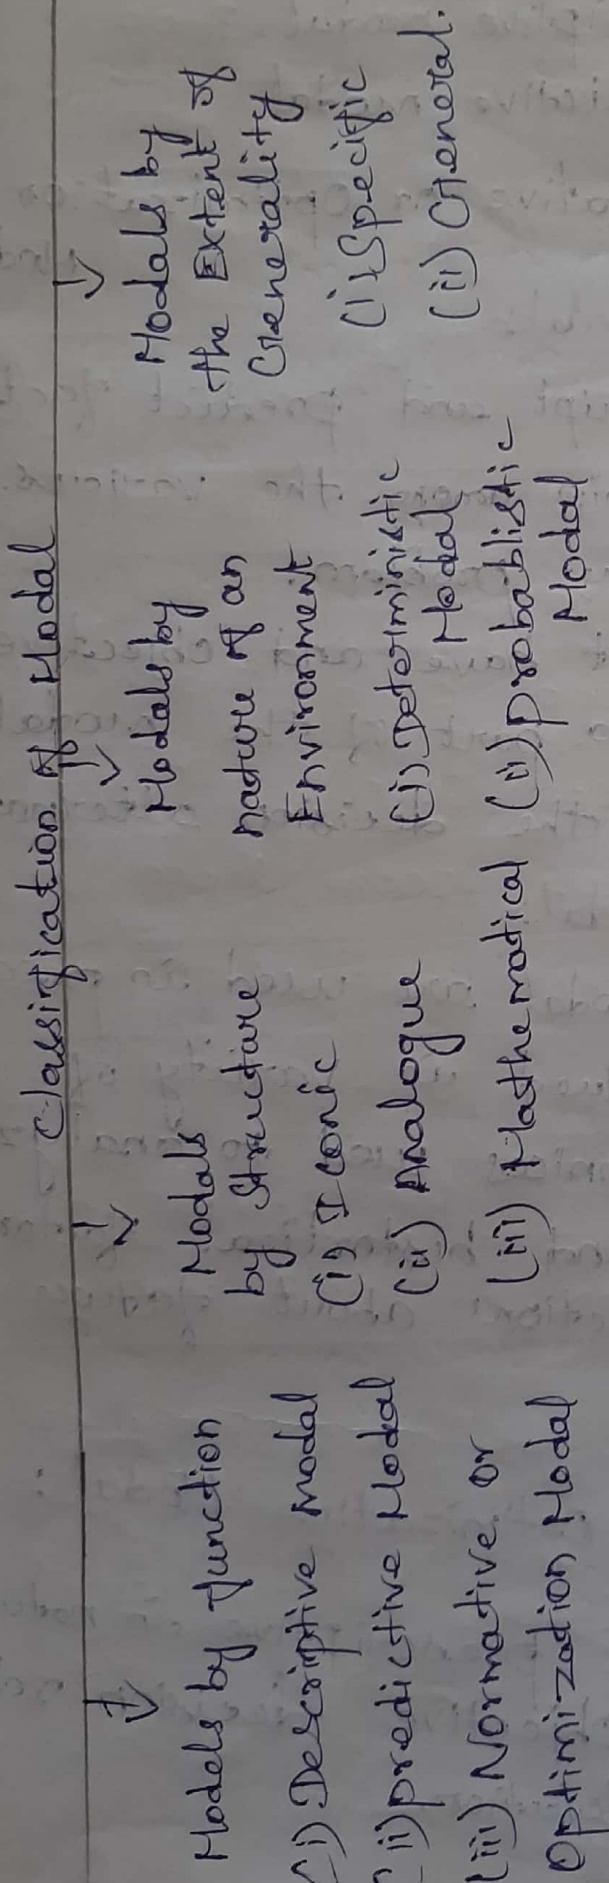 Classification of Modal
Models by function
(i) Descriptive modal
(ii) predictive Modal
(iii) Normative or
Optimization Modal
Modals
by Structure
(i) Iconic
(ii) Analogue
(iii) Mathematical
Modals by
nature of an
Environment
(i) Deterministic
Modal
(ii) probablistic
Modal
Modals by
the Extent of
Generality
(i) Specific
(ii) General.